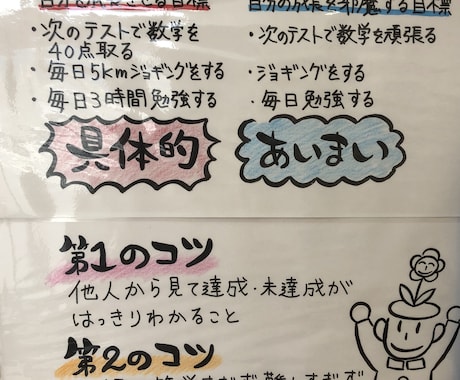 自分を成長させる目標
自分の成長を邪魔する目標
・次のテストで数学を
40点取る
・毎日5kmジョギングをする
・毎日3時間勉強する
具体的
・次のテストで数学を頑張る
・ジョギングをする
・毎日勉強する
あいまい
第1のコツ
他人から見て達成・未達成が
はっきりわかること
第2のコツ